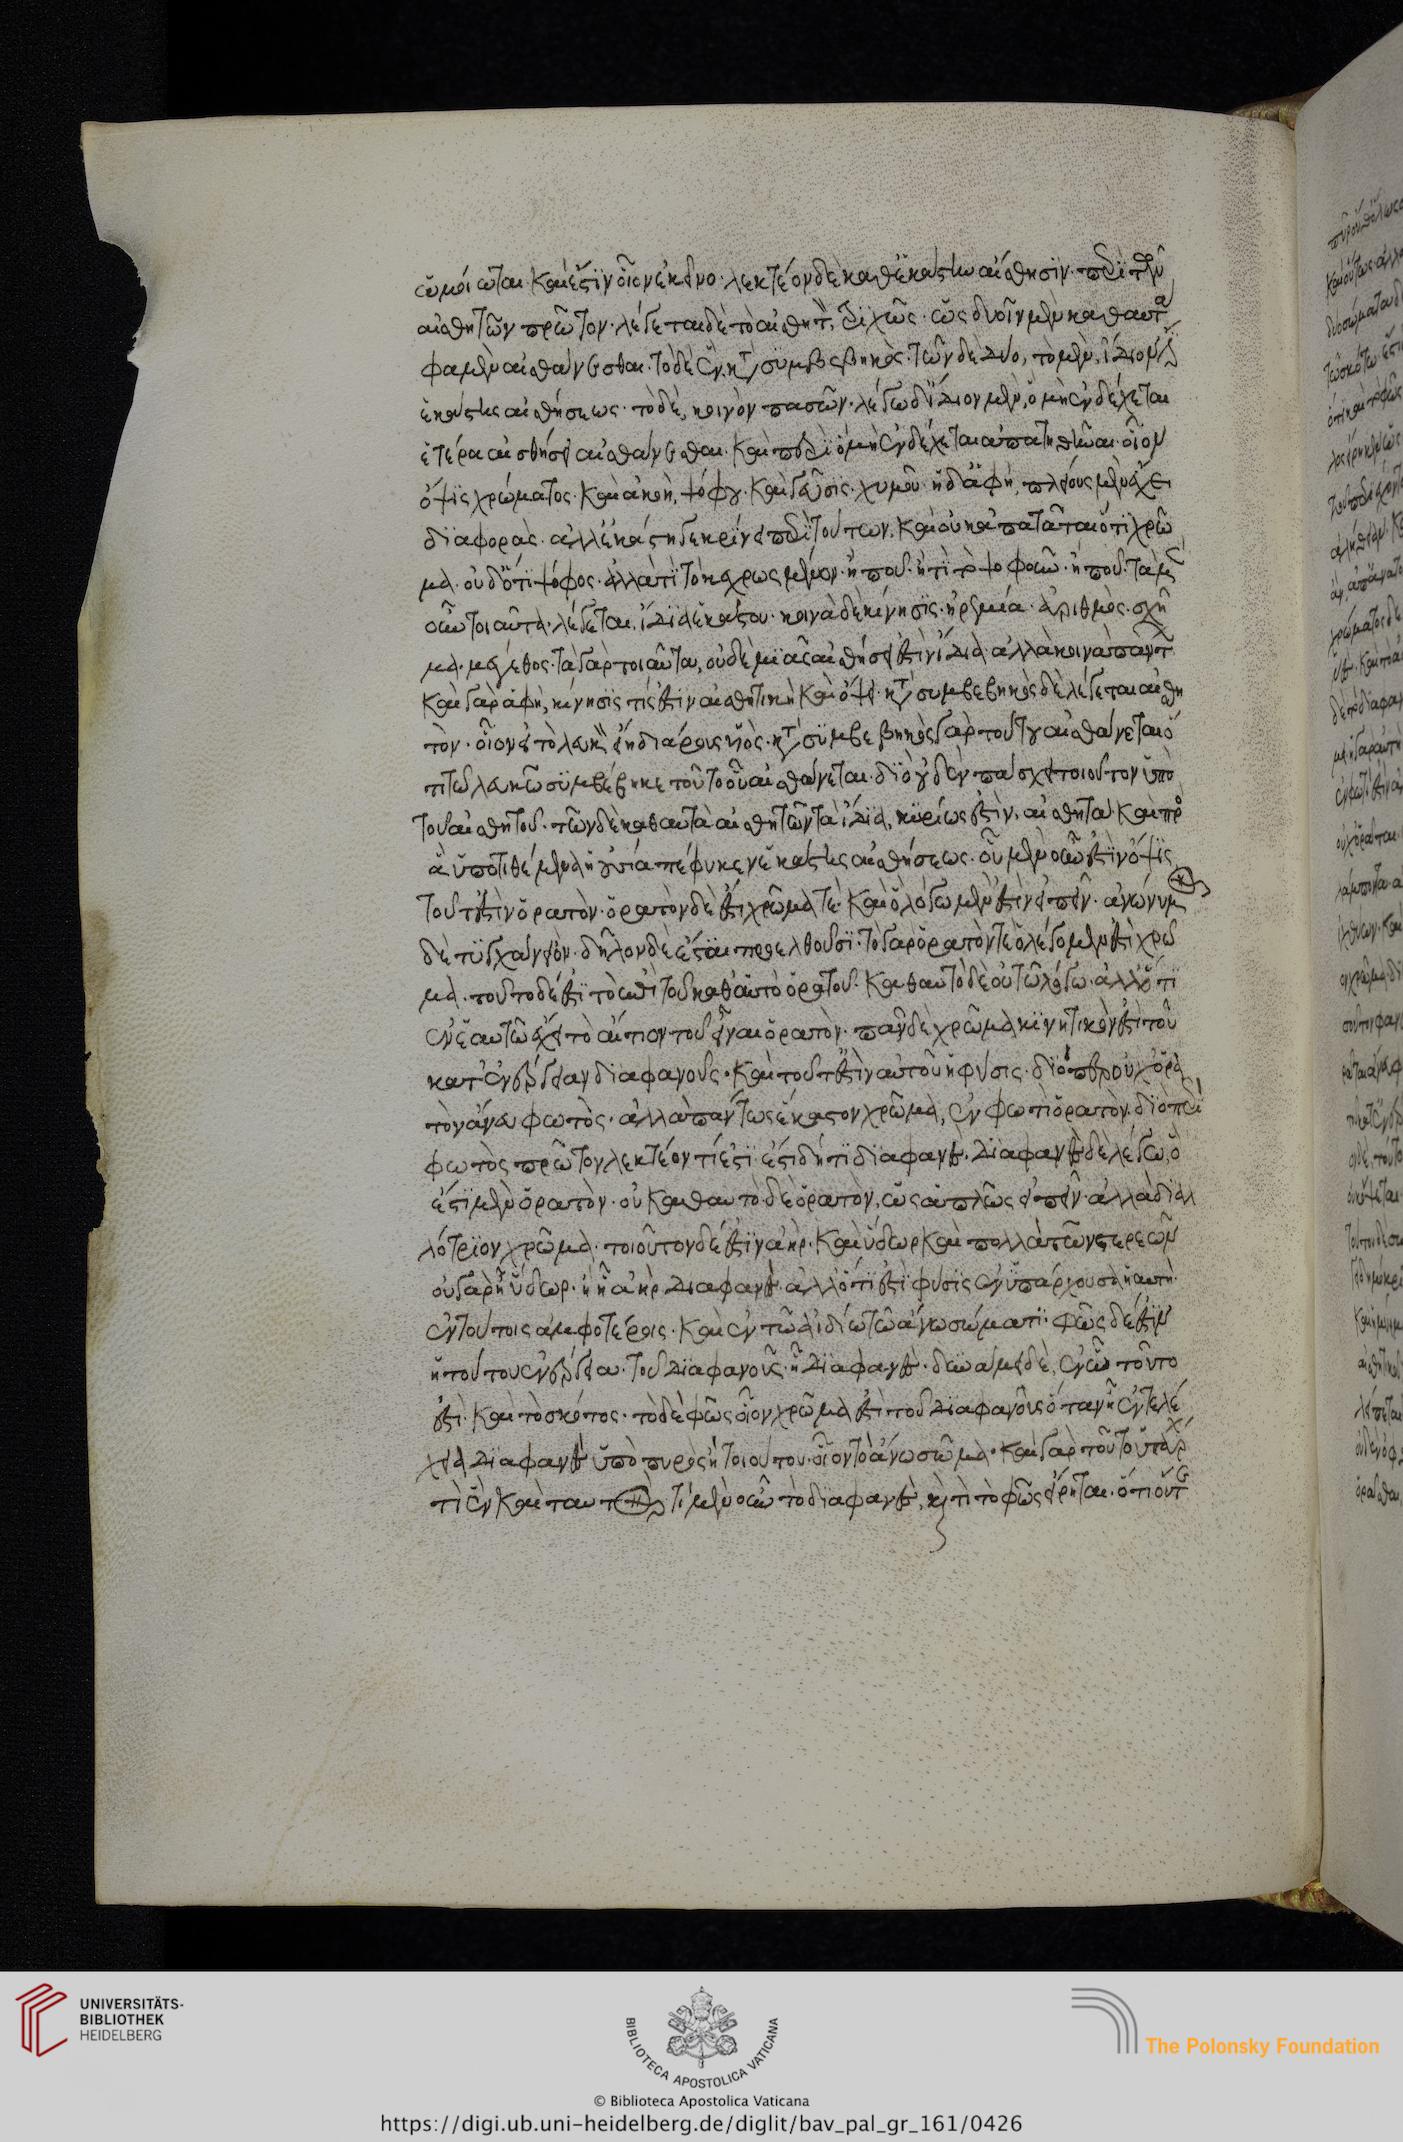 ὡμοίωται καὶ ἔστιν οἷον ἐκεῖνο· λεκτέον δὲ καθ' ἑκάστην αἴσθησιν· περὶ τῶν
αἰσθητῶν πρῶτον· λέγεται δὲ τὸ αἰσθητὸν, τριχῶς· ὧν δυοῖν μὲν καθαυτὰ
φαμὲν αἰσθάνεσθαι· τὸ δὲ ἓν, κατὰ συμβεβηκός· τῶν δὲ δύο, τὸ μὲν, ἴδιον
ἑκάστης αἰσθήσεως· τὸ δὲ, κοινὸν πασῶν· λέγω δ' ἴδιον μὲν, ὃ μὴ ἐνδέχεται
ἑτέρα αἰσθήσει αἰσθάνεσθαι· καὶ περὶ ὃ μὴ ἐνδέχεται ἀπατηθῆναι· οἷον
ὄψις χρώματος· καὶ ἀκοὴ, ψόφου· καὶ γεῦσις· χυμοῦ· ἡ δ' ἁφὴ, πλείους μὲν ἔχει
διαφοράς· ἀλλ' ἑκάστη γε κρίνει περὶ τούτων· καὶ οὐκ ἀπατᾶται ὅτι χρῶ
μα· οὐδ' ὅτι ψόφος· ἀλλὰ τί τὸ κεχρωσμένον· ἢ ποῦ· ἢ τί τὸ ψοφοῦν· ἢ ποῦ· τὰ μὲν
οὖν τοιαῦτα· λέγεται ἴδια ἑκάστου· κοινὰ δὲ κίνησις· ἠρεμία· ἀριθμός· σχῆ
μα· μέγεθος· τὰ γὰρ τοιαῦτα, οὐδεμιᾶς αἰσθήσεώς ἐστιν ἴδια ἀλλὰ κοινὰ πάντα
καὶ γὰρ ἁφῇ, κίνησίς τίς ἐστιν αἰσθητικὴ καὶ ὄψει· κατὰ συμβεβηκὸς δὲ λέγεται αἰσθη
τόν· οἷον εἰ τὸ λευκὸν εἴη διάρους υἱός· κατὰ συμβεβηκὸς γὰρ τούτου αἰσθάνεται ὅ
τι τῷ λευκῷ συμβέβηκε τοῦτο οὗ αἰσθάνεται· διὸ οὐδὲν πάσχει τοιοῦτον ὑπὸ
τοῦ αἰσθητοῦ· τῶν δὲ καθαυτὰ αἰσθητῶν τὰ ἴδια, κυρίως ἐστὶν, αἰσθητά· καὶ πρὸς
ἃ ἡ οὐσία πέφυκεν ἑκάστης αἰσθήσεως· οὗ μὲν οὖν ἐστιν ὄψις
τοῦτ' ἐστὶν ὁρατόν· ὁρατὸν δέ ἐστι χρῶμά τε· καὶ ὃ λόγῳ μὲν ἐστιν εἰπεῖν· ἀνώνυμον
δὲ τυγχάνει ὄν· δῆλον δὲ ἔσται προελθοῦσι· τὸ γὰρ ὁρατόν τε ὃ λέγομεν ἐστὶ χρῶ
μα· τοῦτο δέ ἐστι τὸ ἐπὶ τοῦ καθ' αὑτὸ ὁρατοῦ· καθαυτὸ δὲ οὐ τῷ λόγω· ἀλλ' ὅτι
ἐν ἑαυτῷ ἔχει τὸ αἴτιον τοῦ εἶναι ὁρατόν· πᾶν δὲ χρῶμα κινητικόν ἐστι τοῦ
κατ' ἐνέργειαν διαφανοῦς· καὶ τοῦτ' ἐστὶν αὐτοῦ ἡ φύσις· διόπερ οὐχ ὁρα
τὸν ἄνευ φωτός· ἀλλὰ πάντως ἕκαστον χρῶμα, ἐν φωτὶ ὁρατόν· διὸ περὶ
φωτὸς πρῶτον λεκτέον τί ἐστι· ἔστι δή τι διαφανές· διαφανὲς δὲ λέγω, ὃ
ἔστι μὲν ὁρατόν· οὐ καθαυτὸ δὲ ὁρατὸν, ὡς ἁπλῶς εἰπεῖν· ἀλλὰ δι' ἀλ
λότριον χρῶμα· τοιοῦτον δέ ἐστιν ἀήρ· καὶ ὕδωρ καὶ πολλὰ τῶν στερεῶν
οὐ γὰρ ᾗ ὕδωρ· ἢ ᾗ ἀὴρ διαφανές· ἀλλ' ὅτι ἐστὶ φύσις ἐνυπάρχουσα ἡ αὐτὴ
ἐν τούτοις ἀμφοτέροις· καὶ ἐν τῷ ἀιδίῳ τῷ ἄνω σώματι· φῶς δέ ἐστιν
ἡ τούτου ἐνέργεια· τοῦ διαφανοῦς· ᾗ διαφανές· δυνάμει δὲ, ἐν ᾧ τοῦτο
ἐστὶ· καὶ τὸ σκότος· τὸ δὲ φῶς οἷον χρῶμά ἐστι τοῦ διαφανοῦς ὅταν ᾖ ἐντελε
χεία διαφανὲς ὑπὸ πυρὸς ἢ τοιούτου· οἷον τὸ ἄνω σῶμα· καὶ γὰρ τούτῳ ὑπάρχει
τὶ ἓν καὶ ταυτόν τί μὲν οὖν τὸ διαφανὲς, καὶ τί τὸ φῶς εἴρηται· ὅτι οὔτε
UNIVERSITÄTS-
BIBLIOTHEK
HEIDELBERG
BIBLIOTECA APOSTOLICA VATICANA
The Polonsky Foundation
© Biblioteca Apostolica Vaticana
https://digi.ub.uni-heidelberg.de/diglit/bav_pal_gr_161/0426